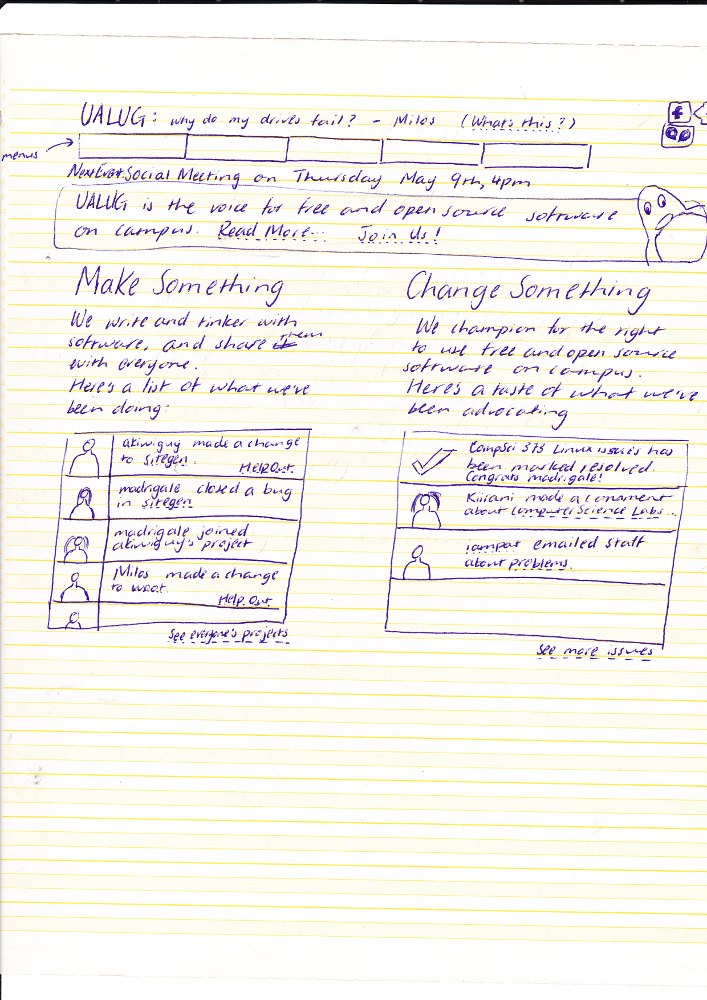 UALUG: why do my drives fail? - Milos (What's this?)
f
menus
Next Event: Social Meeting on Thursday May 9th, 4pm
UALUG is the voice for free and open source software
on campus. Read More... Join Us!
Make Something
We write and tinker with
software, and share them
with everyone.
Here's a list of what we've
been doing:
akiwiguy made a change
to sitegen.
Help Out.
madrigale closed a bug
in sitegen
madrigale joined
akiwiguy's project
Milos made a change
to woot.
Help Out.
See everyone's projects
Change Something
We champion for the right
to use free and open source
software on campus.
Here's a taste of what we've
been advocating
CompSci 373 Linux issues has
been marked resolved.
Congrats madrigale!
made a comment
about Computer Science Labs...
emailed staff
about problems.
See more issues